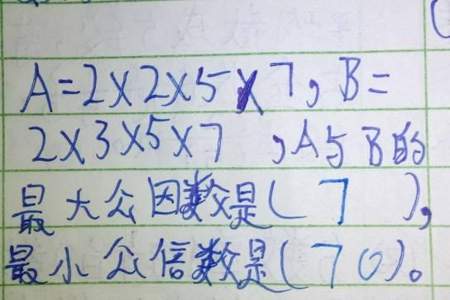 A=2×2×5×7,B=
2×3×5×7 ,A与B的
最大公因数是(7 ),
最小公倍数是(70)。